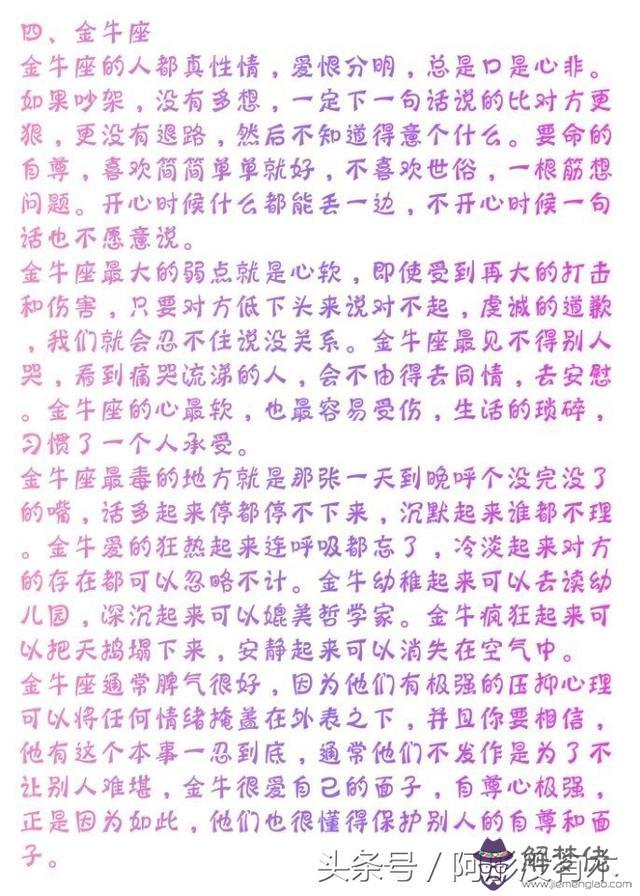 四、金牛座
金牛座的人都真性情，爱恨分明，总是口是心非。
如果吵架，没有多想，一定下一句话说的比对方更
狠，更没有退路，然后不知道得意个什么。要命的
自尊，喜欢简简单单就好，不喜欢世俗，一根筋想
问题。开心时候什么都能丢一边，不开心时候一句
话也不愿意说。
金牛座最大的弱点就是心软，即使受到再大的打击
和伤害，只要对方低下头来说对不起，虔诚的道歉
，我们就会忍不住说没关系。金牛座最见不得别人
哭，看到痛哭流涕的人，会不由得去同情，去安慰
。金牛座的心最软，也最容易受伤，生活的琐碎，
习惯了一个人承受。
金牛座最毒的地方就是那张一天到晚呼个没完没了
的嘴，话多起来停都停不下来，沉默起来谁都不理
。金牛爱的狂热起来连呼吸都忘了，冷淡起来对方
的存在都可以忽略不计。金牛幼稚起来可以去读幼
儿园，深沉起来可以媲美哲学家。金牛疯狂起来可
以把天捣塌下来，安静起来可以消失在空气中。
金牛座通常脾气很好，因为他们有极强的压抑心理
可以将任何情绪掩盖在外表之下，并且你要相信，
他有这个本事一忍到底，通常他们不发作是为了不
让别人难堪，金牛很爱自己的面子，自尊心极强，
正是因为如此，他们也很懂得保护别人的自尊和面
子。
头条号/阿
解梦佬
www.jiemenglao.com